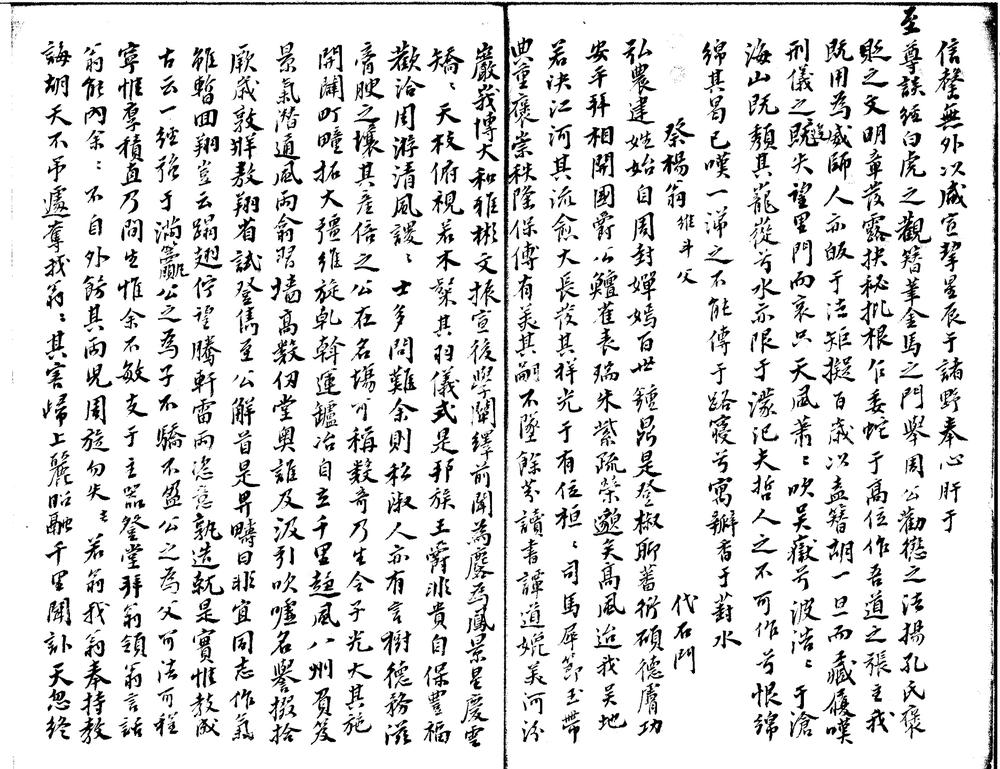 信馨無外以咸宣挈星辰于諸野奉心肝于
至尊談經白虎之觀簪筆金馬之門舉周公勸懲之法揚孔氏褒
貶之文明章茷露抉秘批根乍委蛇于高位作吾道之張主我
既用為咸師人亦皈于法矩擬百歲以盍簪胡一旦而藏履嘆
刑儀之既遠失望里門而哀只天風蕭〻吹吳嶽兮波浩〻于滄
海山既頹其蘢蓯兮水亦限于濛汜夫哲人之不可作兮恨綿
綿其曷已嘆一涕之不能傳于路寢兮寓瓣香于葑水
祭楊翁維斗父　代石門
弘農建姓始自周封嬋嫣百世鍾昴是登椒聊蕃衍碩德膚功
安平拜相開國爵公鱣雀表瑞朱紫疏榮邈矣高風迨我吳地
若決江河其流愈大長茷其祥光于有位桓〻司馬犀節玉帶
典重褒崇秩隆保傅有美其嗣不墜餘芬讀書譚道媲美河汾
巖峩博大和雅彬文振宣後學闡繹前聞為麐為鳳景星慶雲
矯〻天枝俯視若木鬈其羽儀式是邦族王爵非貴自保豐福
歡洽周游清風謖〻士多問難余則私淑人亦有言樹德務滋
膏腴之壤其產倍之公在名場可稱數奇乃生令子光大其施
開闢町疃拓大疆維旋乹斡運鑪冶自立千里趍風八州負笈
景氣潛通風雨翕習墻高數仞堂奧誰及汲引吹噓名譽掇拾
厥歲敦牂敖翔省試登雋至公解首是畀疇曰非宜同志作氣
雖暫回翔豈云蹋翅佇望騰軒雷雨恣意孰造就是實惟教成
古云一經強于滿籝公之為子不驕不盈公之為父可法可程
寧惟羣積直乃間生惟余不敏支于主器登堂拜翁領翁言話
翁能內余〻不自外飭其兩兒周旋勿失〻若翁我翁奉持教
誨胡天不吊遽奪我翁〻其害歸上麗昭融千里聞訃天忽終